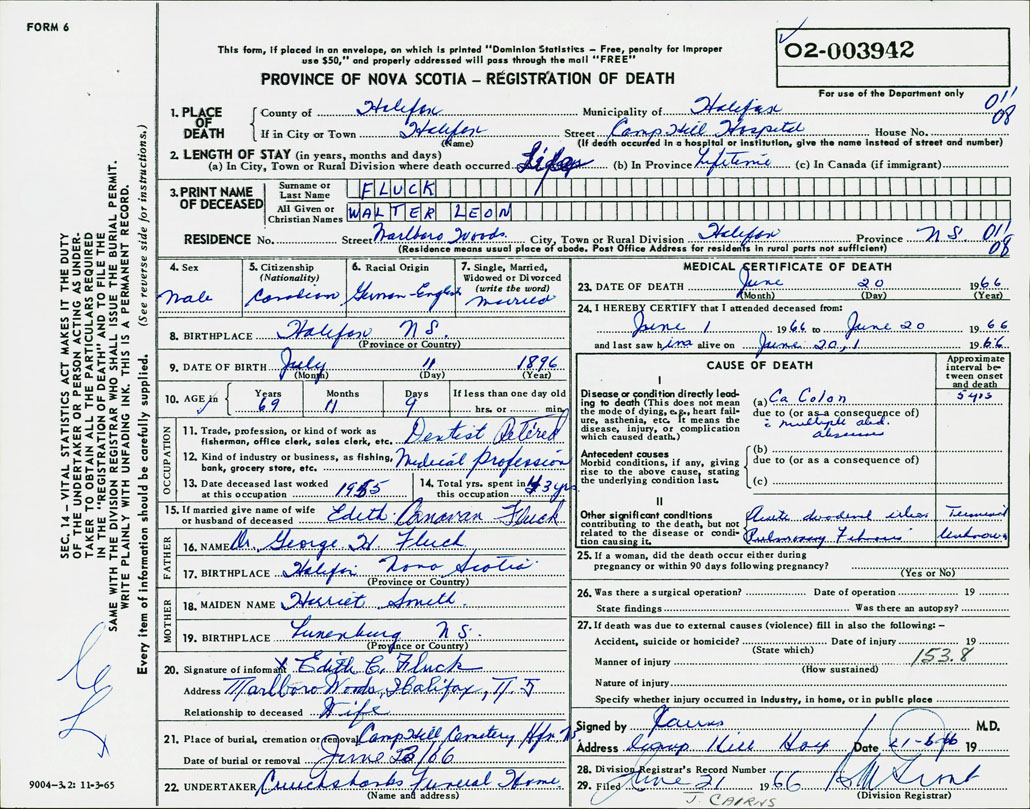 FORM 6
This form, if placed in an envelope, on which is printed "Dominion Statistics – Free, penalty for improper
use $50," and properly addressed will pass through the mail "FREE"
02-003942
PROVINCE OF NOVA SCOTIA – REGISTRATION OF DEATH
For use of the Department only
1. PLACE OF DEATH County of Halifax Municipality of Halifax 011
08
If in City or Town Halifax Street Camp Hill Hospital House No.
(Name) (If death occurred in a hospital or institution, give the name instead of street and number)
2. LENGTH OF STAY (in years, months and days)
(a) In City, Town or Rural Division where death occurred (b) In Province Lifetime (c) In Canada (if immigrant)
3. PRINT NAME OF DECEASED Surname or Last Name FLUCK
All Given or Christian Names WALTER LEON
RESIDENCE No. Street Marlboro Woods City, Town or Rural Division Halifax Province N S. 011
08
(Residence means usual place of abode. Post Office Address for residents in rural parts not sufficient)
4. Sex Male
5. Citizenship (Nationality) Canadian
6. Racial Origin German-English
7. Single, Married, Widowed or Divorced (write the word) married
8. BIRTHPLACE Halifax N.S.
(Province or Country)
9. DATE OF BIRTH July 11 1896
(Month) (Day) (Year)
10. AGE in Years 69 Months 11 Days 9 If less than one day old hrs. or min.
OCCUPATION
11. Trade, profession, or kind of work as fisherman, office clerk, sales clerk, etc. Dentist Retired
12. Kind of industry or business, as fishing, bank, grocery store, etc. Medical profession
13. Date deceased last worked at this occupation 1955
14. Total yrs. spent in this occupation 43 yrs
15. If married give name of wife or husband of deceased Edith Fluck
FATHER
16. NAME Dr. George H Fluck
17. BIRTHPLACE Halifax Nova Scotia
(Province or Country)
MOTHER
18. MAIDEN NAME Harriet
19. BIRTHPLACE Lunenburg N S.
(Province or Country)
20. Signature of informant X Edith C. Fluck
Address Marlboro Woods, Halifax, N.S
Relationship to deceased Wife
21. Place of burial, cremation or removal Camp Hill Cemetery, Hfx. N
Date of burial or removal June /66
22. UNDERTAKER Funeral Home
(Name and address)
MEDICAL CERTIFICATE OF DEATH
23. DATE OF DEATH June 20 1966
(Month) (Day) (Year)
24. I HEREBY CERTIFY that I attended deceased from:
June 1 1966 to June 20 1966
and last saw him alive on June 20, 1966
CAUSE OF DEATH
Approximate interval between onset and death
I
Disease or condition directly leading to death (This does not mean the mode of dying, e.g., heart failure, asthenia, etc. It means the disease, injury, or complication which caused death.)
(a) Ca Colon 5 yrs
due to (or as a consequence of)
c multiple abd.
Antecedent causes
Morbid conditions, if any, giving rise to the above cause, stating the underlying condition last.
(b)
due to (or as a consequence of)
(c)
II
Other significant conditions contributing to the death, but not related to the disease or condition causing it.
Acute duodenal ulcer Terminal
Pulmonary Fibrosis Unknown
25. If a woman, did the death occur either during
pregnancy or within 90 days following pregnancy?
(Yes or No)
26. Was there a surgical operation? Date of operation 19
State findings Was there an autopsy?
27. If death was due to external causes (violence) fill in also the following: –
Accident, suicide or homicide? Date of injury 19
(State which)
153.8
Manner of injury
(How sustained)
Nature of injury
Specify whether injury occurred in industry, in home, or in public place
Signed by Cairns M.D.
Address Camp Hill Hosp Date 21-6-66 19
28. Division Registrar's Record Number
29. Filed June 21 1966
(Division Registrar)
J. CAIRNS
SEC. 14 – VITAL STATISTICS ACT MAKES IT THE DUTY
OF THE UNDERTAKER OR PERSON ACTING AS UNDER-
TAKER TO OBTAIN ALL THE PARTICULARS REQUIRED
IN THE "REGISTRATION OF DEATH" AND TO FILE THE
SAME WITH THE DIVISION REGISTRAR WHO SHALL ISSUE THE BURIAL PERMIT.
WRITE PLAINLY WITH UNFADING INK. THIS IS A PERMANENT RECORD.
Every item of information should be carefully supplied. (See reverse side for instructions.)
9004-3.2: 11-3-65